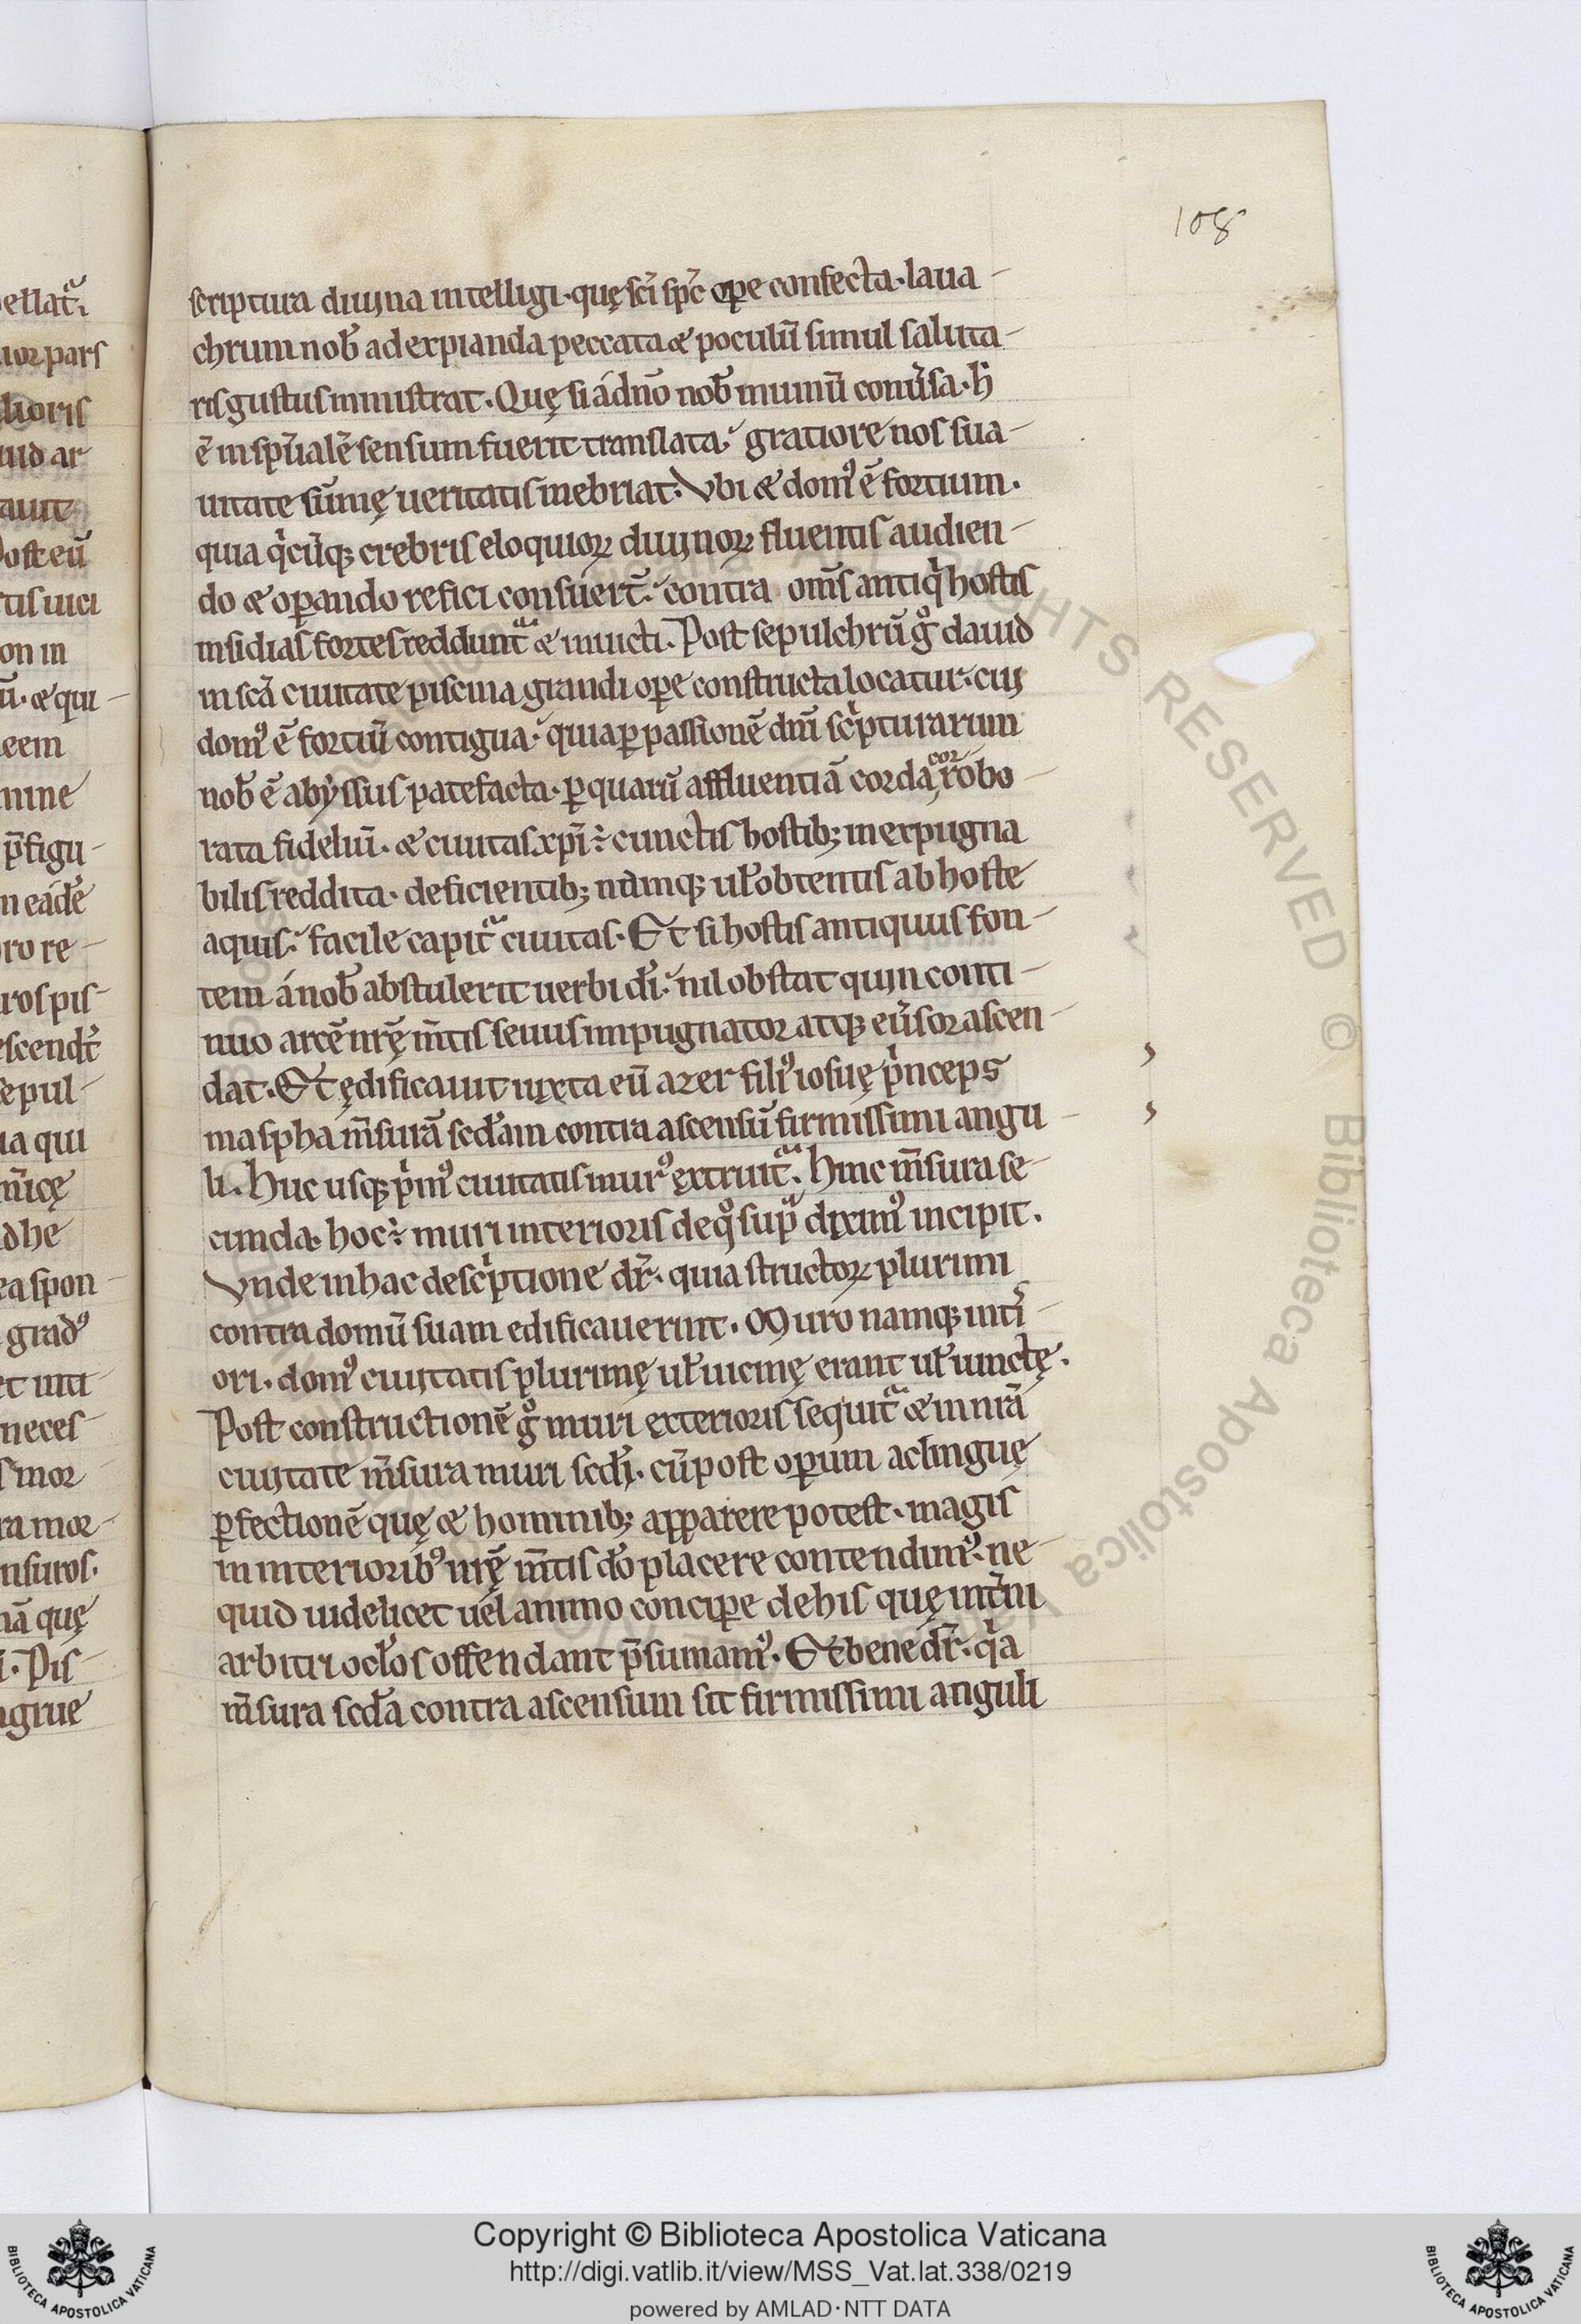 108
scriptura diuina intelligi· quę sc̄i sp̄c ope confecta· laua-
chrum nob̄ ad expianda peccata & poculū simul saluta-
ris gustus ministrat. Quę si á dn̄o nob̄ in uinū conúsa· h̄
ē in sp̄ialē sensum fuerit translata; gratiore nos sua-
uitate sūmę ueritatis inebriat. Vbi & dom9 ē fortium.
quia q̇cūq; crebris eloquioꝝ diuinoꝝ fluentis audien-
do & oꝑando refici consuert̄; contra om̄s antiq̇ hostis
insidias fortes reddunt̃ & inuicti. Post sepulchrū g̊ dauid
in scā ciuitate piscina grandi oꝑe constructa locatur. cui
dom9 ē fortiū contigua· quia ꝑ passionē dn̄i sc̍pturarum
nob̄ ē abyssus patefacta· ꝑ quarū affluentiā corda corrobo-
rata fideliū· & ciuitas xp̄i ÷ cunctis hostib; inexpugna
bilis reddita· deficientib; nanq; ul̄ obtentis ab hoste
aquis; facile capit̃ ciuitas. Et si hostis antiquus fon-
tem á nob̄ abstulerit uerbi dī; nil obstat quin conti-
nuo arcē nr̄ę m̄tis seuus inpugnator atq; eúsor ascen-
dat. Et ędificauit iuxta eū azer fili9 iosuę p̍nceps
maspha m̄surā scd̄am contra ascensū firmissimi angu-
li. Huc usq; p̍m9 ciuitatis mur9 extruit̃. Hinc m̄sura se-
cunda· hoc ÷ muri interioris de q̊ sup̃ dixim9 incipit.
Vnde in hac desc̍ptione dr̄· quia structoꝝ plurimi
contra domū suam edificauerint. Muro namq; inti-
ori· dom9 ciuitatis plurimę ul̄ uicinę erant ul̄ iunctę.
Post constructionē g̊ muri exterioris sequit̃ & in nr̄ā
ciuitate m̄sura muri scd̄i· cū post operum ac linguę
ꝑfectionē quę & hominib; apparere potest· magis
in interiorib9 nr̄ę m̄tis dō placere contendim9· ne
quid uidelicet uel animo concipe de his quę int̄ni
arbitri oclōs offendant p̄sumam9. Et bene dr̄· q̇a
m̄sura scd̄a contra ascensum sit firmissimi anguli
Copyright © Biblioteca Apostolica Vaticana
http://digi.vatlib.it/view/MSS_Vat.lat.338/0219
powered by AMLAD·NTT DATA